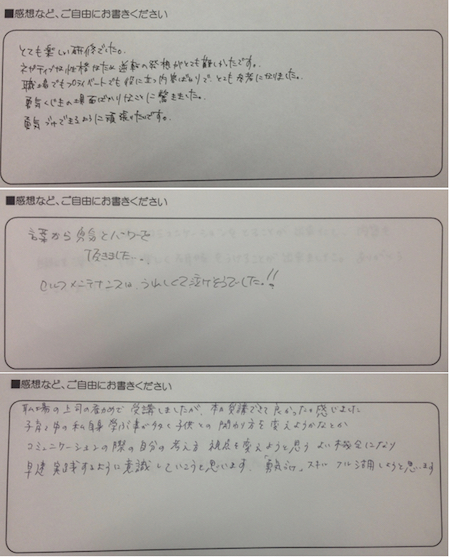 ■感想など、ご自由にお書きください
とても楽しい研修でした。
ネガティブな性格なため逆転の発想がとても難しかったです。
職場でもプライベートでも役に立つ内容ばかりで、とても参考になりました。
勇気くじきの場面ばかりなことに驚きました。
勇気づけできるように頑張りたいです。
■感想など、ご自由にお書きください
言葉から勇気とパワーを
頂きました。
セルフメンテナンスは、うれしくて泣けそうでした。!!
■感想など、ご自由にお書きください
職場の上司の薦めで受講しましたが、本当に受講できて良かったと感じました
子育て中の私自身学ぶ事が多く子供との関わり方を変えようなどとか
コミュニケーションの際の自分の考え方 視点を変えようと思う よい機会になり
早速 実践するように意識していこうと思います。「勇気づけ」スキル フル活用しようと思います